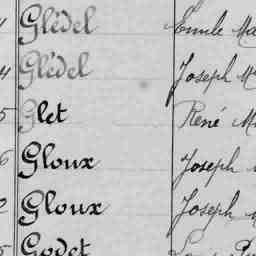 Glédel Emile Ma
4 Glédel Joseph M
5 Glet René M
6 Gloux Joseph
2 Gloux Joseph
5 Godet